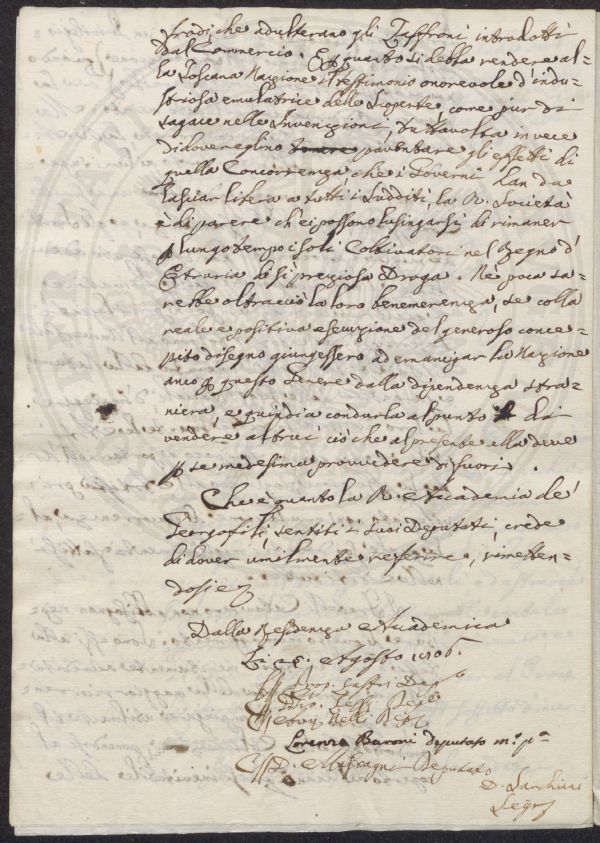 frodi, che adulterano gli Zaffroni introdotti
dal Commercio. E quanto si debba rendere al-
la Toscana Nazione il testimonio onorevole d'indu-
striosa emulatrice delle scoperte, come pur di
sagace nelle Invenzioni, tuttavolta in vece
di dover eglino paventare gli effetti di
quella Concorrenza che i Governi han da
lasciar libera a tutti i Sudditi, la R. Società
è di parere ch'ei possono lusingarsi di rimaner
p lungo tempo i soli Coltivatori nel Regno d'
Etruria di sì preziosa Droga. Nè poca sa-
rebbe oltracciò la loro benemerenza, se colla
reale e positiva esecuzione del generoso conce-
pito disegno giungessero ad emancipar la Nazione
anco p questo Genere dalla dipendenza stra-
niera, e quindi a condurla al punto di
vendere altrui ciò che al presente ella deve
p se medesima provvedere di fuori.
Che è quanto la R. Accademia de'
Georgofili, sentiti i suoi Deputati, crede
di dover umilmente referire, rimetten-
dosi
Dalla Residenza Accademica
Agosto 1806.
Lorenzo Baroni deputato m.º p.ª
Deputato